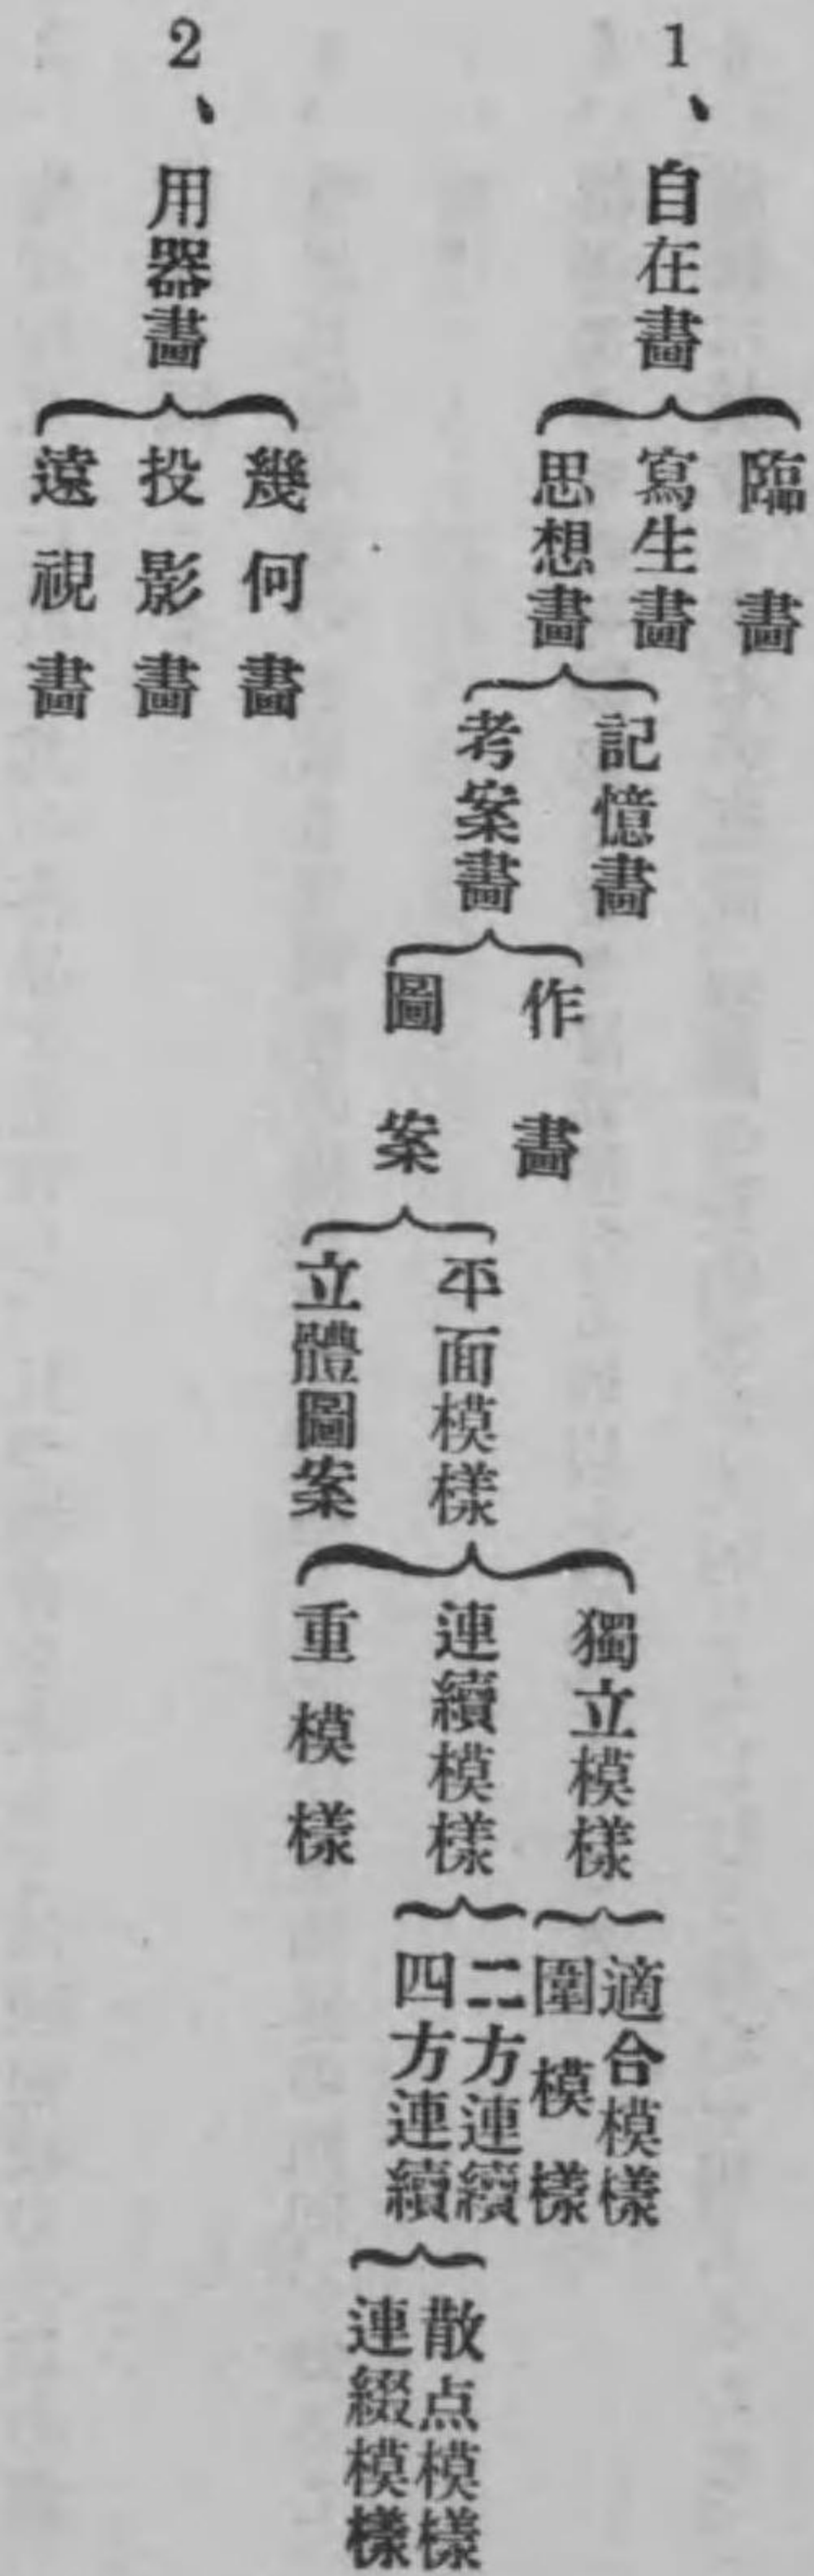 1、自在畫
臨畫
寫生畫
思想畫
記憶畫
考案畫
作畫
圖案
平面模樣
立體圖案
獨立模樣
連續模樣
重模樣
適合模樣
圍模樣
二方連續
四方連續
散点模樣
連綴模樣
2、用器畫
幾何畫
投影畫
遠視畫